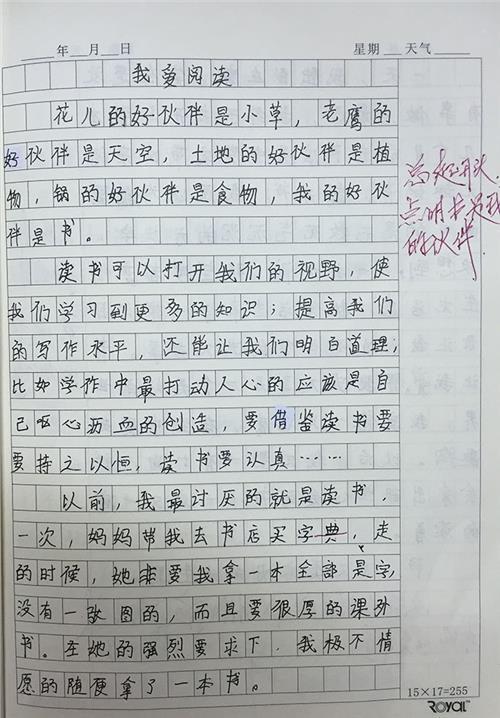 年 月 日 星期 天气
我爱阅读
花儿的好伙伴是小草，老鹰的
好伙伴是天空，土地的好伙伴是植
物，锅的好伙伴是食物，我的好伙
伴是书。
读书可以打开我们的视野，使
我们学习到更多的知识；提高我们
的写作水平，还能让我们明白道理；
比如学作中最打动人心的应该是自
己呕心沥血的创造，要借鉴读书要
要持之以恒，读书要认真……
以前，我最讨厌的就是读书，
一次，妈妈带我去书店买字典，走
的时候，她非要我拿一本全部是字，
没有一张图的，而且要很厚的课外
书。在她的强烈要求下，我极不情
愿的随便拿了一本书。
点明书是我
的伙伴
15×17=255
ROYAL